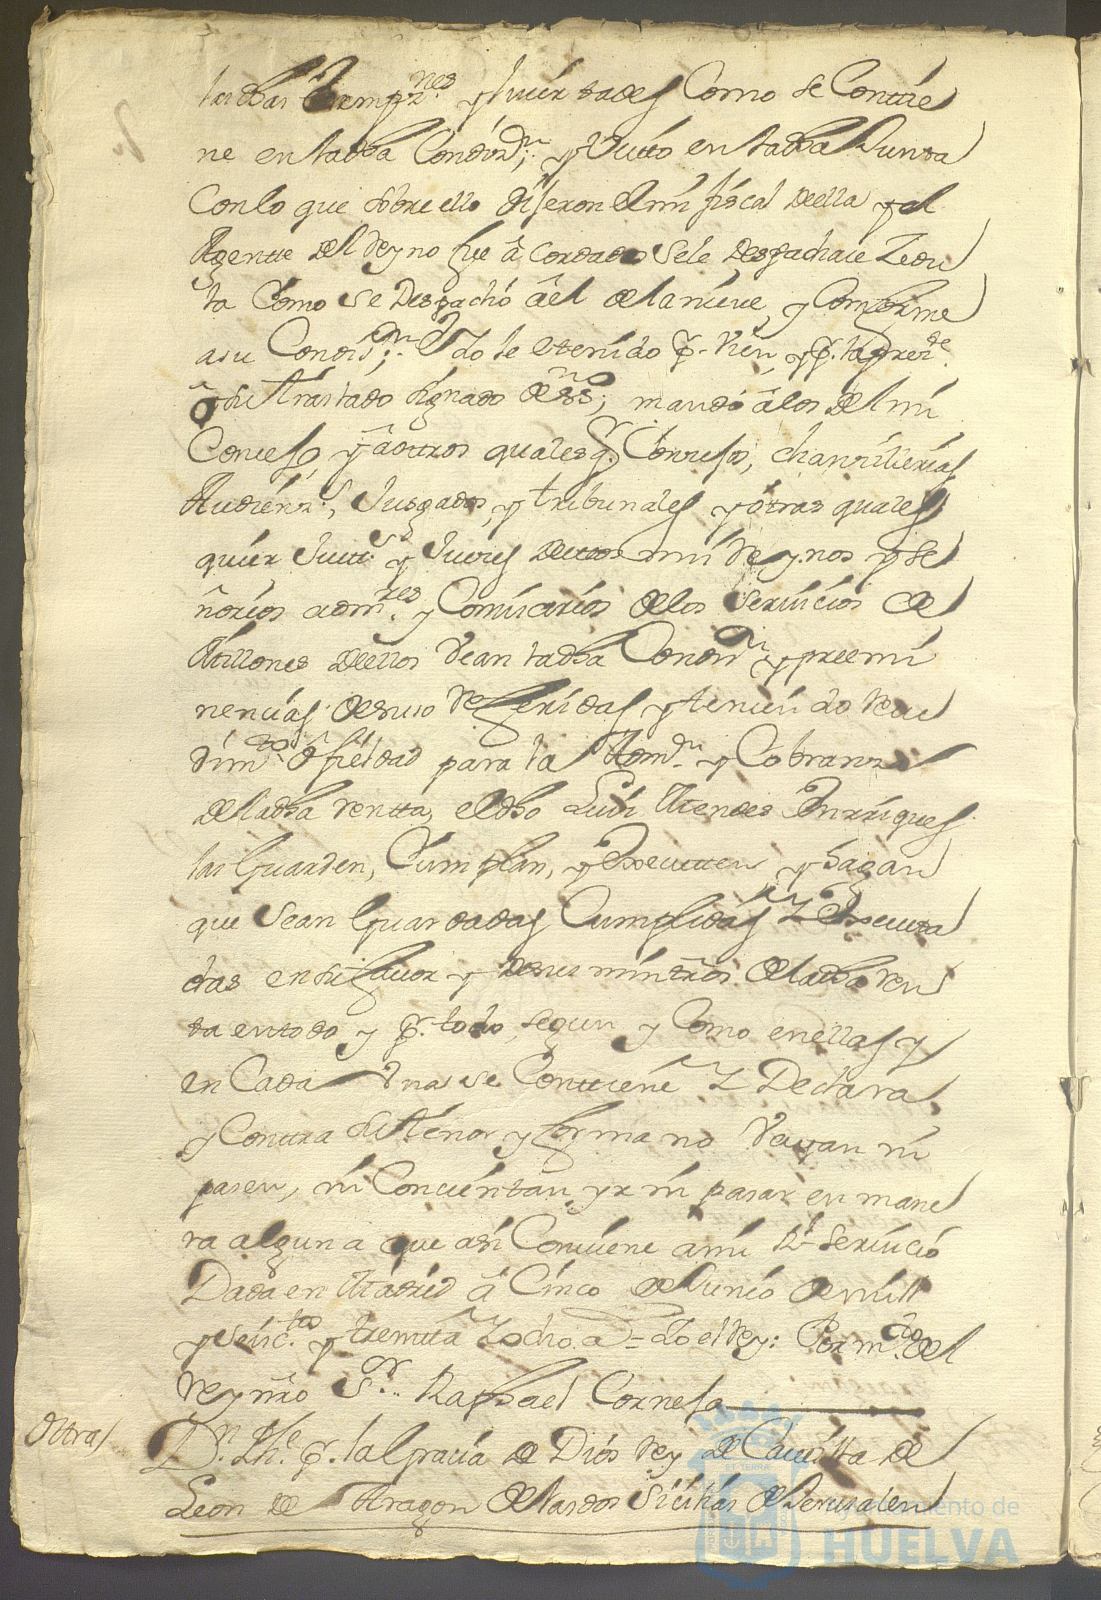 las dhas exempz.nes y livertades Como se Contie
ne en la dha Condiz.n; y Visto en la dha Junta
Con lo que sobre ello dijeron el mi fiscal de ella y el
Agente del Reyno fue acordado se le despachase Zedu
la Como se Despachó a el de la nieve, y Conforme
a su Condiz.n; Yo lo he tenido p.r vien, y p.r la pres.te
o su traslado signado de ess.no; mando a los del mi
Consejo y a otros qualesq.r Consejos, chanzillerias
Audienz.s, Jusgados, y tribunales y otras quales
quier Justi.s y Jueces de estos mis Reynos y Se
ñorios adm.res y Comisarios de los servicios de
Millones de ellos Vean la dha Condiz.n y preemi
nencias de suso Referidas y teniendo Recu
dim.to o fieldad para la Adm.n y Cobranza
de la dha renta, el dho Luis Mendes Enrriques
las Guarden, Cumplan, y Executen y hagan
que Sean Guardadas Cumplidas Y Executa
das en su favor y de sus ministros de la dha Ren
ta en todo y p.r todo, segun y Como en ellas y
en Cada Vna se Contiene Y Declara
y Contra su tenor y forma no Vayan ni
pasen, ni Consientan yr ni pasar en mane
ra alguna que asi Conviene a mi R.l servicio
Dada en Madrid a Cinco de Junio de mill
y seisc.tos y treinta Y ocho a.s= Yo el Rey: Por m.do del
Rey nro S.or Raphael Cornejo
Ottra
D.n Phe. p.r la Gracia de Dios Rey de Castilla de
Leon de Aragon de las dos Sicilias de Jerusalen
Ayuntamiento de
HUELVA